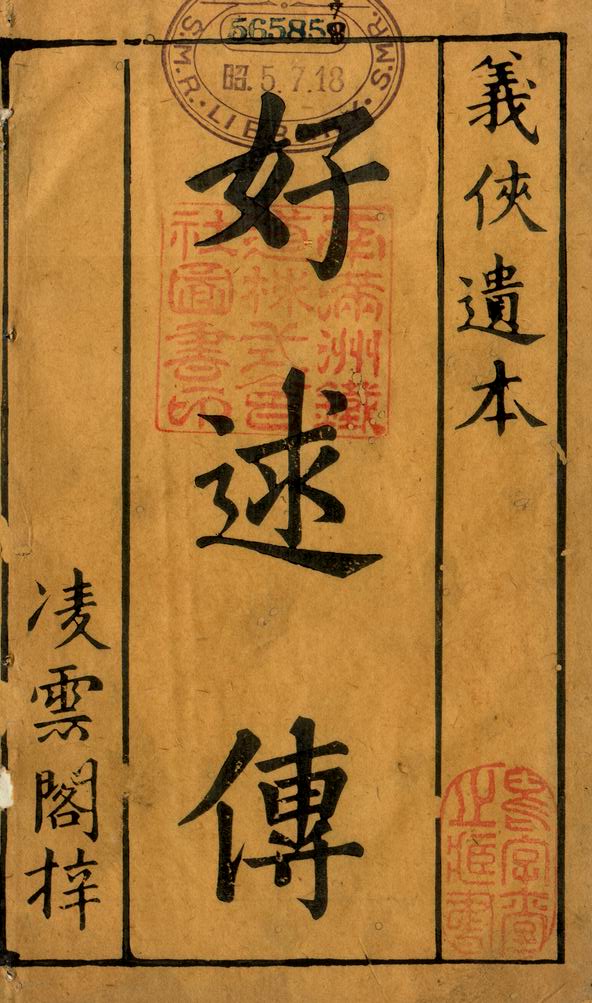 565859
昭.5.7.18
S.M.R. LIBRARY
義俠遺本
好逑傳
凌雲閣梓
南滿洲鐵
道株式會
社圖書印